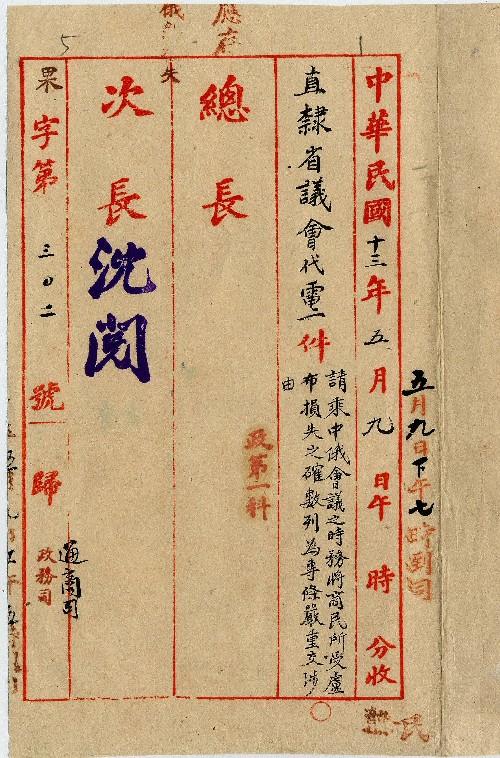 五月九日下午七時到司
中華民國十三年五月九日午時分收
直隸省議會代電一件
請乘中俄會議之時務將商民所受盧
布損失之確數列為專條嚴重交涉
由
政第一科
總長
次長
沈閱
果字第三〇二號歸
通商司
政務司